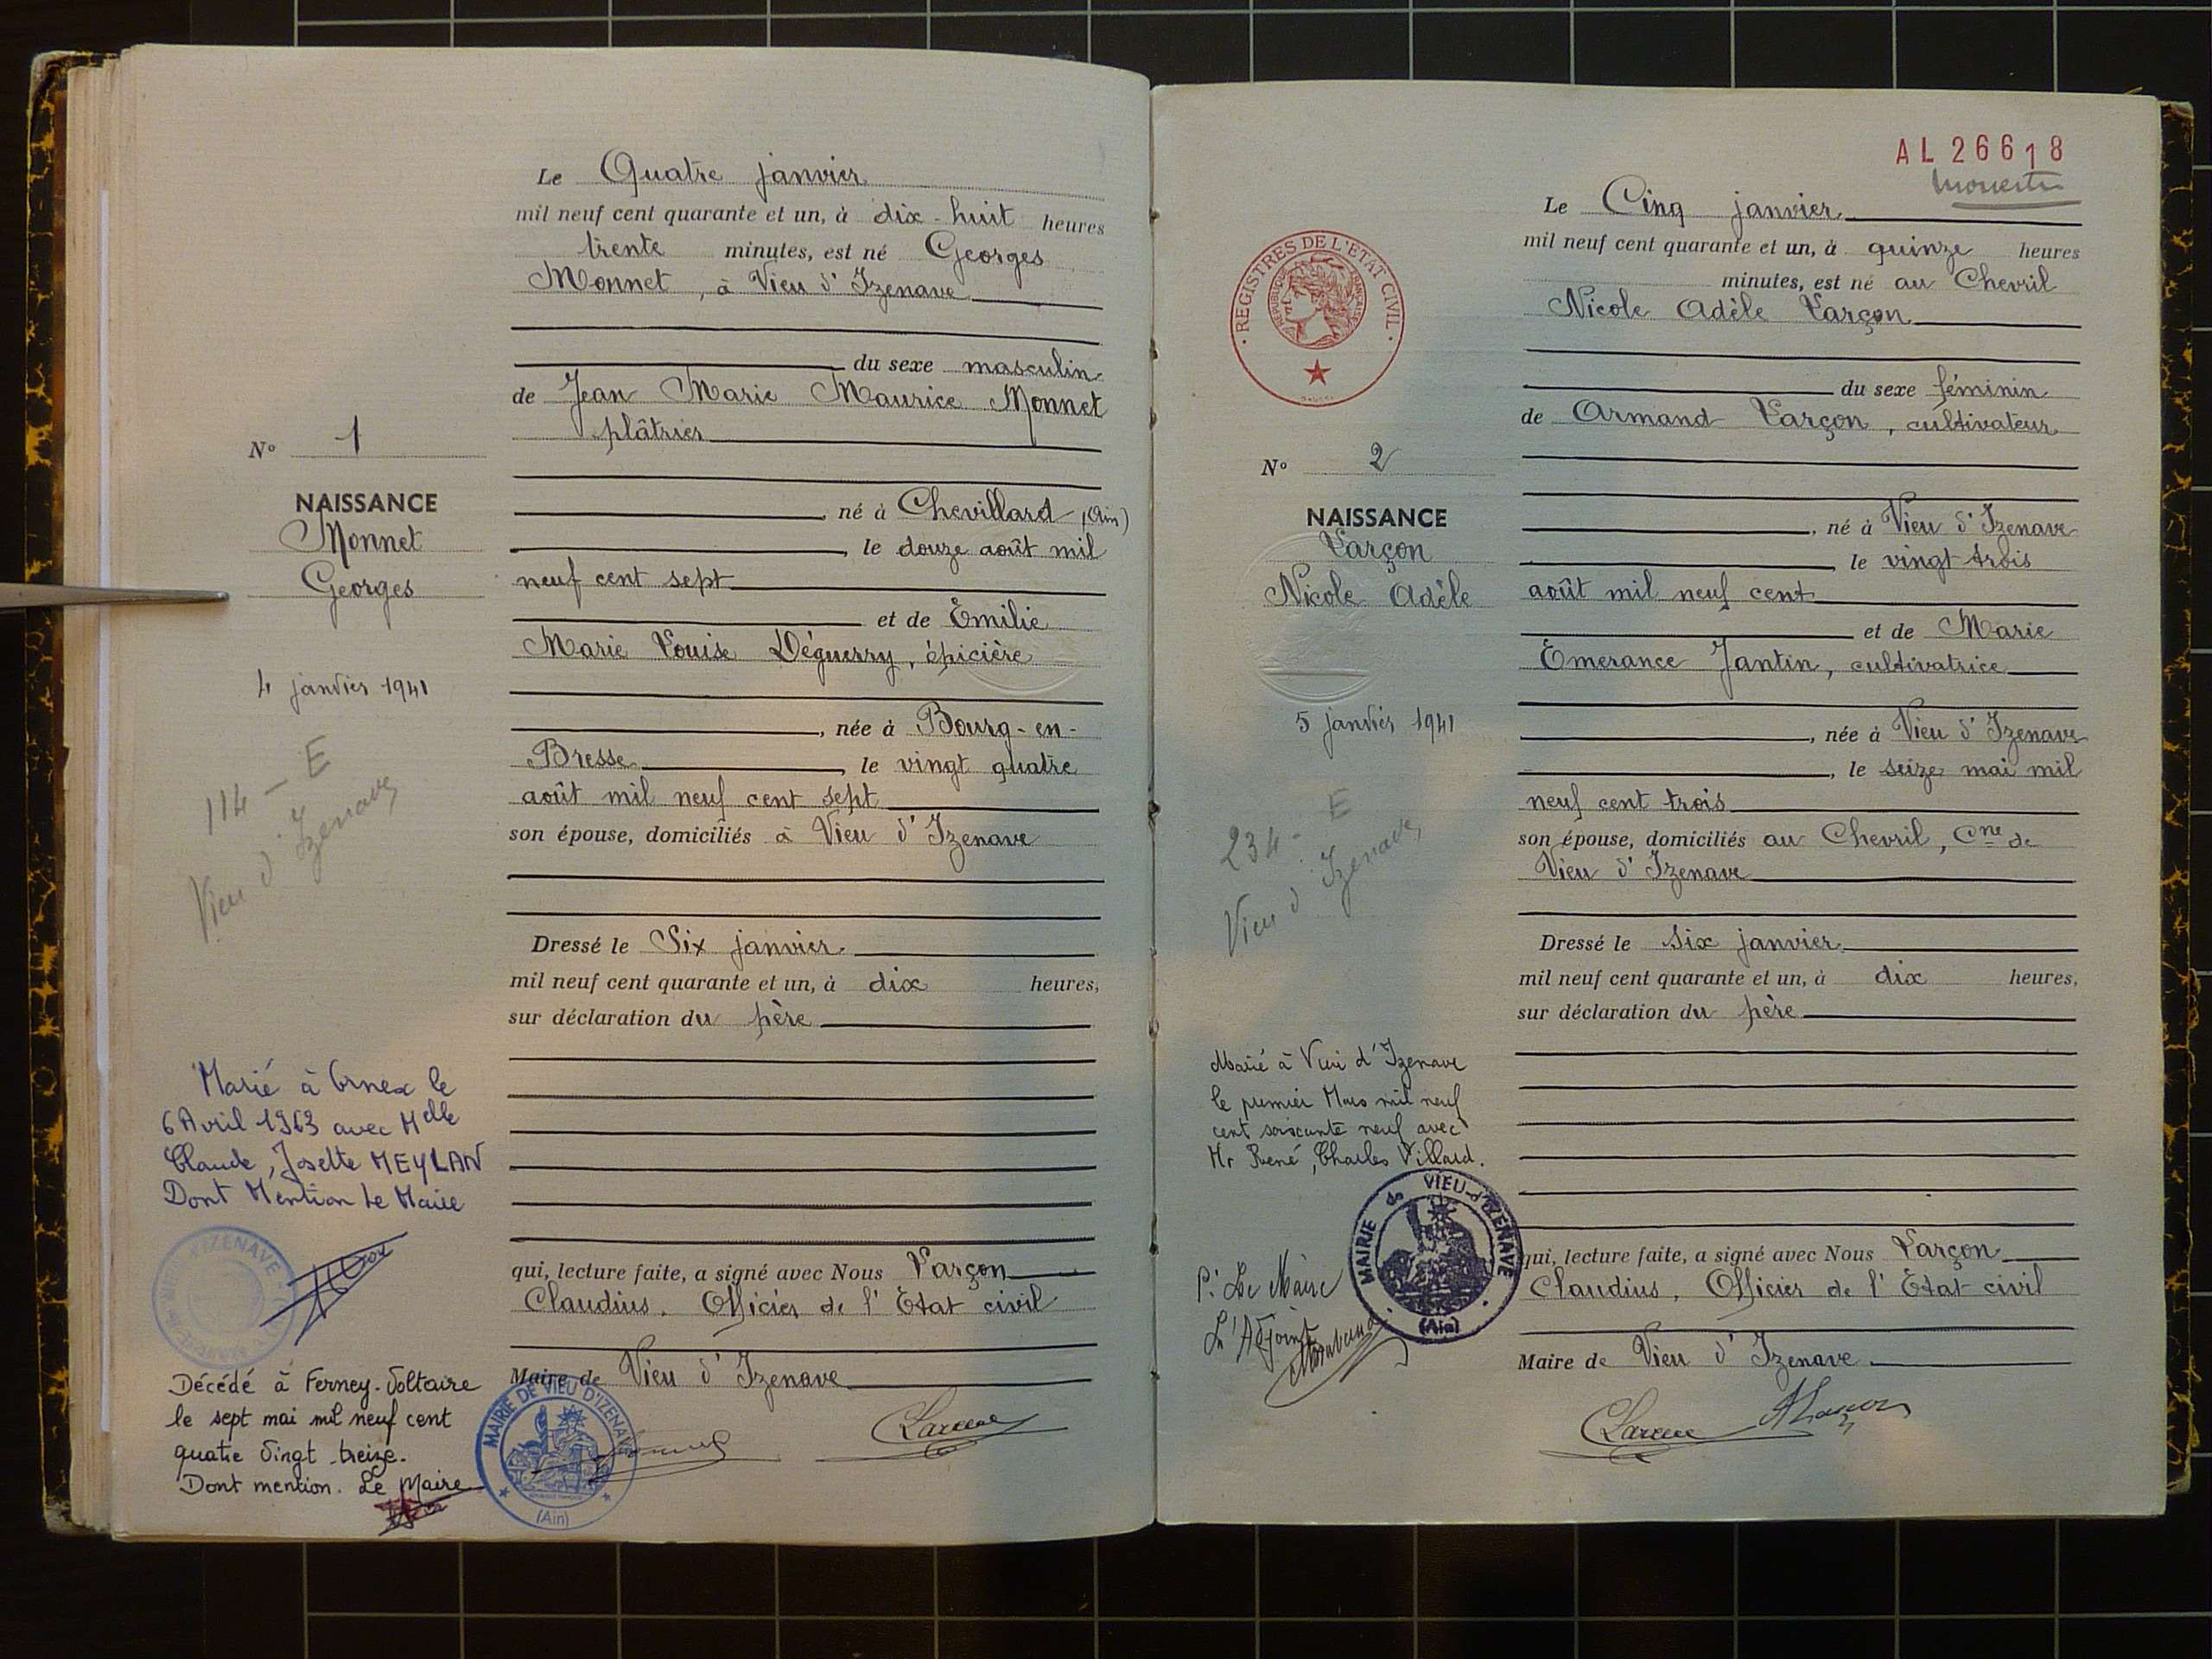 Le Quatre janvier
mil neuf cent quarante et un, à dix-huit heures
trente minutes, est né Georges
Monnet, à Vieu d'Izenave
du sexe masculin
de Jean Marie Maurice Monnet
plâtrier
né à Chevillard (Ain)
, le douze août mil
neuf cent sept
et de Emilie
Marie Louise Déguerry, épicière
, née à Bourg-en-
Bresse, le vingt quatre
août mil neuf cent sept
son épouse, domiciliés à Vieu d'Izenave
Dressé le Six janvier
mil neuf cent quarante et un, à dix heures,
sur déclaration du père
qui, lecture faite, a signé avec Nous Larçon
Claudius. Officier de l'Etat civil
Maire de Vieu d'Izenave
MAIRIE DE VIEU D'IZENAVE
(Ain)
N° 1
NAISSANCE
Monnet
Georges
4 janvier 1941
114 - E
Vieu d'Izenave
Marié à Ornex le
6 Avril 1963 avec Mdlle
Claude, Josette MEYLAN
Dont Mention Le Maire
Décédé à Ferney-Voltaire
le sept mai mil neuf cent
quatre vingt treize.
Dont mention. Le Maire
AL 26618
Le Cinq janvier
mil neuf cent quarante et un, à quinze heures
minutes, est né au Chevril
Nicole Adèle Larçon
du sexe féminin
de Armand Larçon, cultivateur
, né à Vieu d'Izenave
, le vingt trois
août mil neuf cent
et de Marie
Emerance Jantin, cultivatrice
, née à Vieu d'Izenave
, le seize mai mil
neuf cent trois
son épouse, domiciliés au Chevril, Cne de
Vieu d'Izenave
Dressé le Six janvier
mil neuf cent quarante et un, à dix heures,
sur déclaration du père
qui, lecture faite, a signé avec Nous Larçon
Claudius, Officier de l'Etat civil
Maire de Vieu d'Izenave
REGISTRES DE L'ETAT CIVIL
REPUBLIQUE FRANÇAISE
N° 2
NAISSANCE
Larçon
Nicole Adèle
5 janvier 1941
234 - E
Vieu d'Izenave
Marié à Vieu d'Izenave
le premier Mars mil neuf
cent soixante neuf avec
Mr René, Charles Villard.
MAIRIE de VIEU-d'IZENAVE
(Ain)
P. Le Maire
L'Adjoint